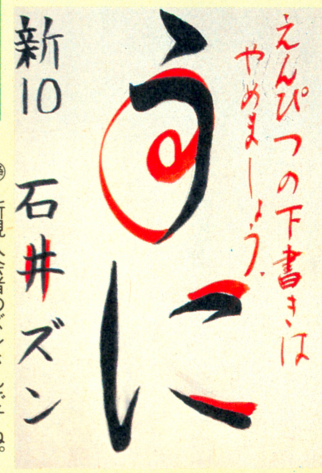 えんぴつの下書きは
やめましょう。
うに
新10 石井ズン